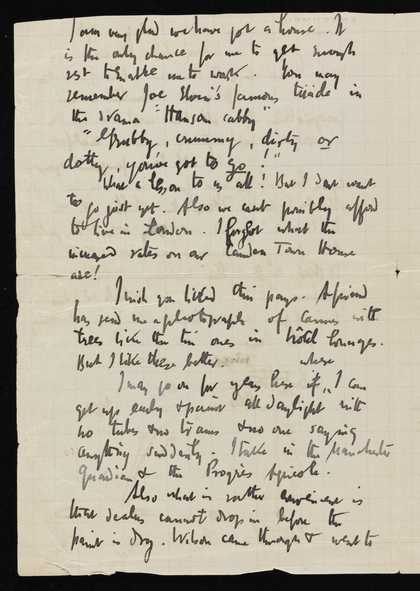 I am very glad we have got a house. It
is the only chance for me to get enough
rest to enable me to work. You may
remember Joe Elvin's famous tirade in
the drama "Hansom Cabby"
"Grubby, crummy, dirty or
dotty, you've got to go!"
What a lesson to us all! But I don't want
to go just yet. Also we can't possibly afford
to live in London. I forget what the
increased rates on our Camden Town House
are!
I wish you liked this pays. A friend
has send me a photograph of Cannes with
trees like the tin ones in hôtel lounges.
But I like these better.
I may go on for years here if, where I can
get up early & paint all daylight with
no tubes & no trams & no one saying
anything suddenly. I take in the Manchester
Guardian & the Progrès Agricole.
Also what is rather convenient is
that dealers cannot drop in before the
paint is dry. Wilson came through & went to